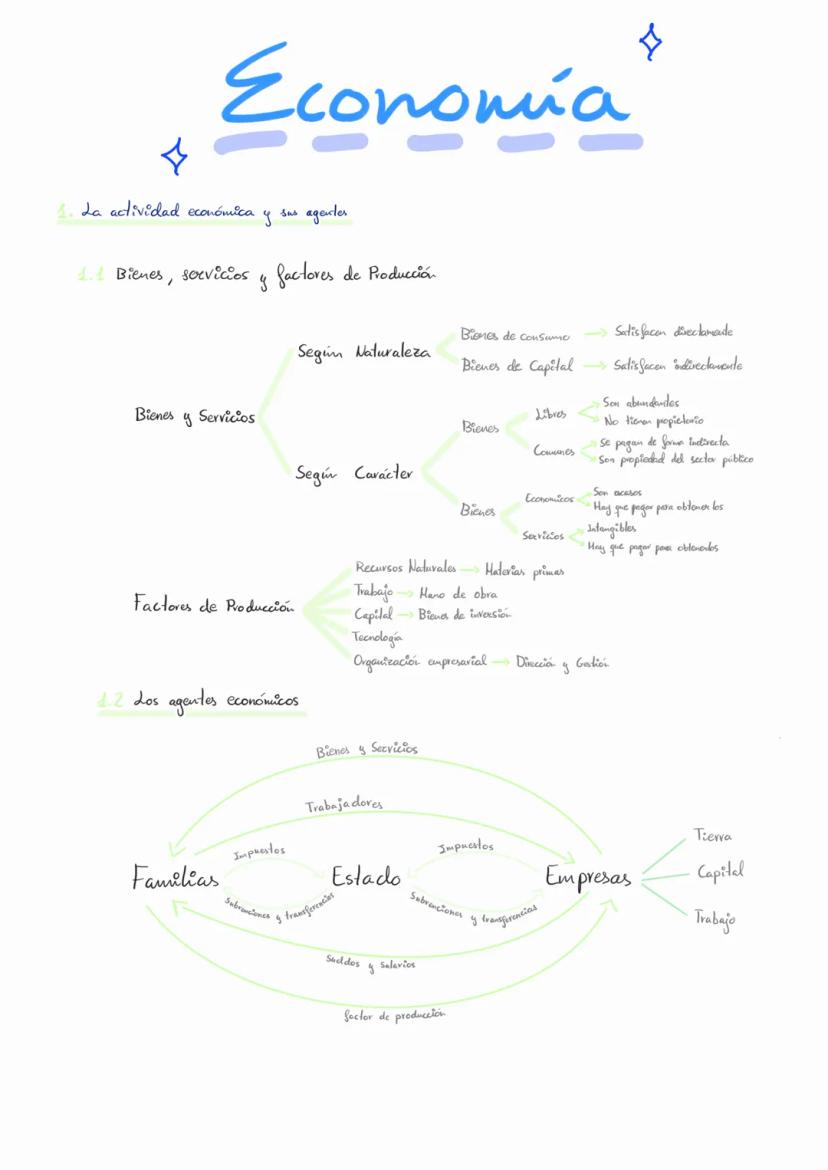 Economía
1. La actividad económica y sus agentes
1.1 Bienes, servicios y factores de Producción
Bienes y Servicios
Según Naturaleza
Bienes de consumo → Satisfacen directamente
Bienes de Capital → Satisfacen indirectamente
Según Carácter
Bienes
Libres
Son abundantes
No tienen propietario
Comunes
Se pagan de forma indirecta
Son propiedad del sector público
Bienes
Economicos
Son escasos
Hay que pagar para obtenerlos
Servicios
Intangibles
Hay que pagar para obtenerlos
Factores de Producción
Recursos Naturales → Materias primas
Trabajo → Mano de obra
Capital → Bienes de inversión
Tecnología
Organización empresarial → Dirección y Gestión
1.2 Los agentes económicos
Bienes y Servicios
Trabajadores
Impuestos
Impuestos
Familias
Estado
Empresas
Tierra
Capital
Trabajo
Subvenciones y transferencias
Subvenciones y transferencias
Sueldos y salarios
factor de producción